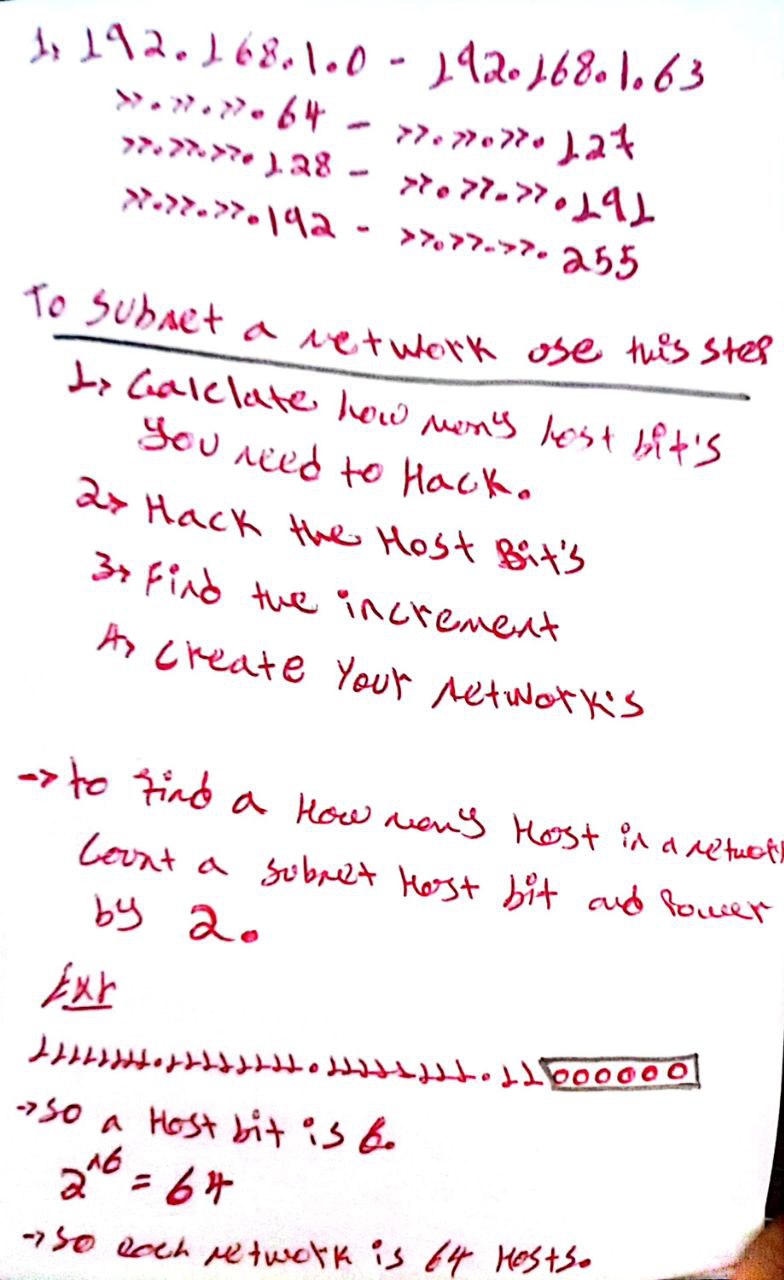 1, 192.168.1.0 - 192.168.1.63
>>.>>.>>.64 - >>.>>.>>.127
>>.>>.>>.128 - >>.>>.>>.191
>>.>>.>>.192 - >>.>>.>>.255
To Subnet a network use this step
1, Calclate how many host bit's
you need to Hack.
2, Hack the Host Bit's
3, Find the increment
4, Create Your network's
-> to find a How many Host in a network
Count a subnet Host bit and Power
by 2.
Exr
11111111.11111111.11111111.11000000
->so a Host bit is 6.
2^6 = 64
->so each network is 64 Hosts.